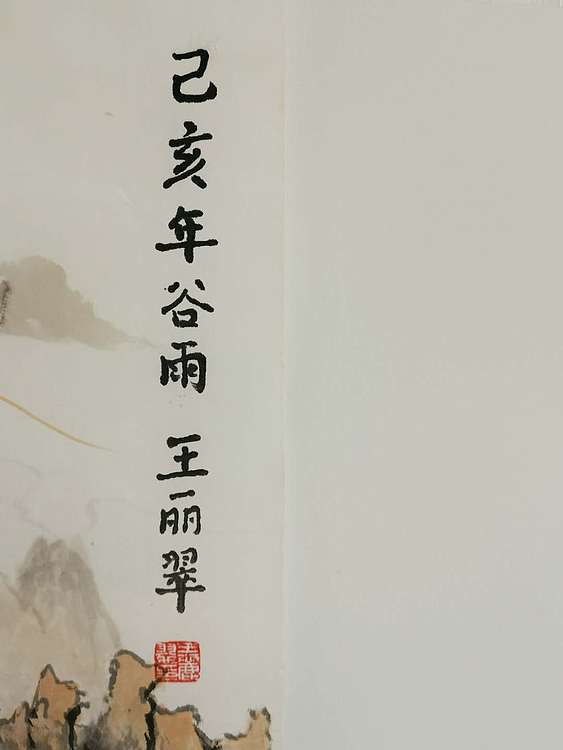 己亥年谷雨 王丽翠